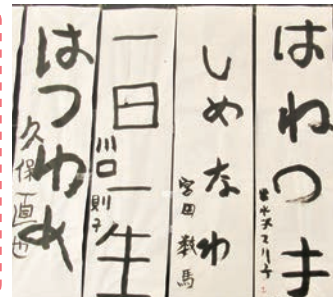 はねつき
しめなわ
宮田 数馬
一日一生
川口 則子
はつゆめ
久保直也